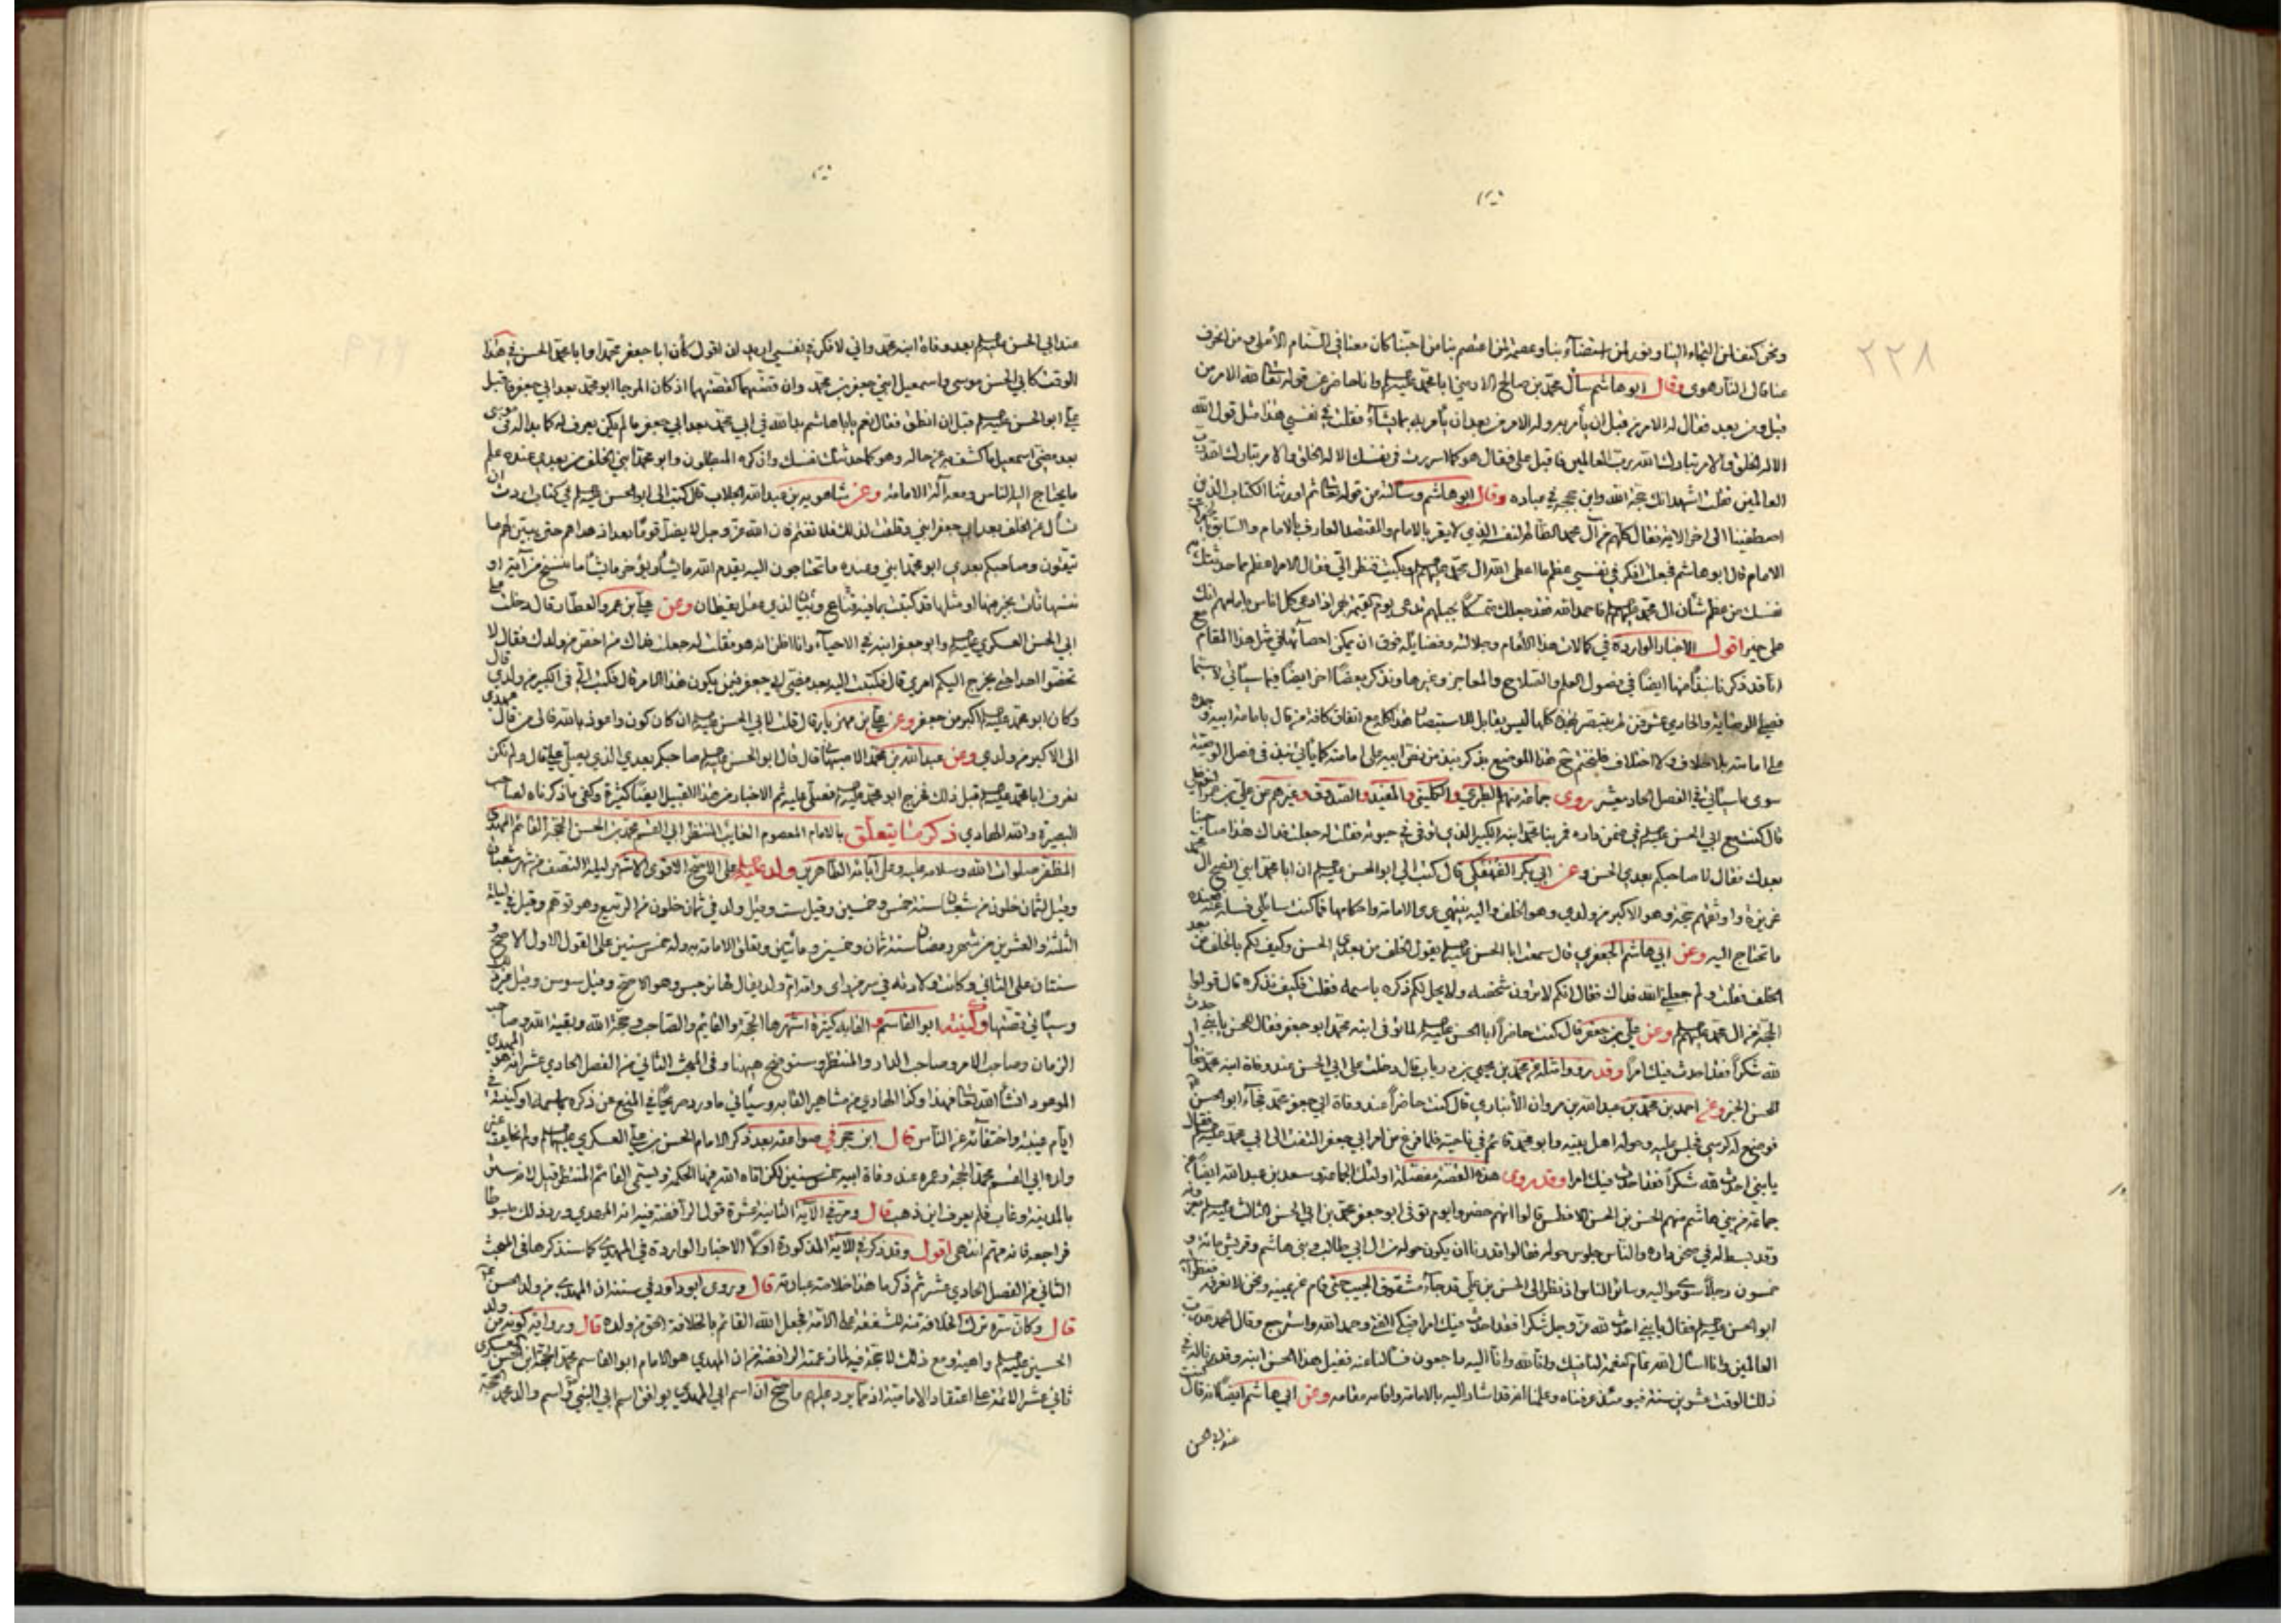 ٢٢٨
ونحن كهف لمن التجاء الينا ونور لمن استضاء بنا وعصمة لمن اعتصم بنا من احبنا كان معنا في السنام الأعلى ومن انحرف
عنا فالى النار هوى وقال ابو هاشم سأل محمد بن صالح الارمني ابا محمد عليه السلام وانا حاضر عن قوله تعالى لله الامر من
قبل ومن بعد فقال له الامر من قبل ان يأمر به وله الامر من بعد ان يأمر به بما يشاء فقلت في نفسي هذا مثل قول الله
الا له الخلق والامر تبارك الله رب العالمين فاقبل علي فقال هو كما اسررت في نفسك الا له الخلق والامر تبارك الله رب
العالمين فقلت اشهد انك حجة الله وابن حججه في عباده وقال ابو هاشم وسألته عن قوله تعالى ثم اورثنا الكتاب الذين
اصطفينا الى اخر الاية فقال كلهم من آل محمد الظالم لنفسه الذي لا يقر بالامام والمقتصد العارف بالامام والسابق
الامام قال ابو هاشم فجعلت افكر في نفسي عظم ما اعطى الله آل محمد وبكيت فنظر الي فقال الامر اعظم مما حدثتك
نفسك من عظم شأن آل محمد فاحمد الله فقد جعلك متمسكا بحبلهم تدعى يوم القيمة بهم اذا دعي كل اناس بامامهم انك
على خير اقول الاخبار الواردة في كمالات هذا الامام وجلالته وفضايله فوق ان يمكن احصائها في مثل هذا المقام
انا قد ذكرنا نبذا منها ايضا في فصول العلم والصلاح والمعاجز وغيرها ونذكر بعضا اخر ايضا فيما سيأتي لا سيما
فصلي الوصاية والحادي عشر فمن لم يتبصر بهذه كلها ليس بقابل للاستبصار هذا كله مع اتفاق كافة من قال بامامة ابيه وجده
على امامته بلا خلاف ولا اختلاف فلنختم هذا الموضع بذكر نبذ من نص ابيه على امامته كما يأتي نبذ في فصل الوصية
سوى ما سيأتي في الفصل الحاد يعشر روى جماعة منهم الطبري والكليني والمفيد والصدوق وغيرهم عن علي بن عمرو النوفلي
قال كنت مع ابي الحسن في صحن داره فمر بنا محمد ابنه الكبير الذي توفي في حيوته فقلت له جعلت فداك هذا صاحبنا
بعدك فقال لا صاحبكم بعدي الحسن وعن ابي بكر الفهفكي قال كتب الي ابو الحسن ان ابا محمد ابني انصح آل محمد
غريزة واوثقهم حجة وهو الاكبر من ولدي وهو الخلف واليه ينتهي عرى الامامة واحكامها فما كنت سائلي فسله عنه فعنده
ما تحتاج اليه وعن ابي هاشم الجعفري قال سمعت ابا الحسن يقول الخلف من بعدي الحسن وكيف لكم بالخلف من بعد
الخلف فقلت ولم جعلني الله فداك فقال انكم لا ترون شخصه ولا يحل لكم ذكره باسمه فقلت فكيف نذكره قال قولوا
الحجة من آل محمد وعن علي بن جعفر قال كنت حاضرا ابا الحسن لما توفي ابنه محمد ابو جعفر فقال للحسن يا بني احدث
لله شكرا فقد احدث فيك امرا وقد رووا مثله عن محمد بن يحيى بن رياب قال دخلت على ابي الحسن عند وفاة ابنه محمد فقال
للحسن الخبر وعن احمد بن محمد بن عبدالله بن مروان الأنباري قال كنت حاضرا عند وفاة ابي جعفر محمد فجاء ابو الحسن
فوضع له كرسي فجلس عليه وحوله اهل بيته وابو محمد قائم في ناحية فلما فرغ من امر ابي جعفر التفت الى ابي محمد فقال
يا بني احدث لله شكرا فقد احدث فيك امرا وقد روى هذه القصة مفصلة اولئك الجماعة وسعد بن عبدالله ايضا عن
جماعة من بني هاشم منهم الحسن بن الحسن الافطس قالوا انهم حضروا يوم توفي ابو جعفر محمد بن ابي الحسن الثالث
وقد بسط له في صحن داره والناس جلوس حوله فقالوا قدرنا ان يكون حوله من آل ابي طالب وبني هاشم وقريش مائة و
خمسون رجلا سوى مواليه وسائر الناس اذ نظر الى الحسن بن علي قد جاء مشقوق الجيب حتى قام عن يمينه ونحن لا نعرفه فنظر اليه
ابو الحسن فقال يا بني احدث لله عز وجل شكرا فقد احدث فيك امرا فبكى الفتى وحمد الله واسترجع وقال الحمد لله رب
العالمين وانا اسأل الله تمام نعمه لنا فيك وانا لله وانا اليه راجعون فسألنا عنه فقيل هذا الحسن ابنه وقدرنا له في
ذلك الوقت عشرين سنة فيومئذ عرفناه وعلمنا انه قد اشار اليه بالامامة واقامه مقامه وعن ابي هاشم ايضا انه قال كنت
عند ابي الحسن
عند ابي الحسن بعد وفاة ابنه محمد واني لافكر في نفسي اريد ان اقول كأن ابا جعفر محمدا وابا محمد الحسن في هذا
الوقت كابي الحسن موسى واسمعيل ابني جعفر بن محمد وان قصتهما كقصتهما اذ كان المرجا ابو محمد بعد ابي جعفر فاقبل
علي ابو الحسن قبل ان انطق فقال نعم يا ابا هاشم بدا لله في ابي محمد بعد ابي جعفر ما لم يكن يعرف له كما بدا له في موسى
بعد مضي اسمعيل ما كشف به عن حاله وهو كما حدثتك نفسك وان كره المبطلون وابو محمد ابني الخلف من بعدي عنده علم
ما يحتاج اليه الناس ومعه آلة الامامة وعن شاهويه بن عبدالله الجلاب قال كتب الي ابو الحسن في كتاب اردت ان
تسأل عن الخلف بعد ابي جعفر ابني وقلقت لذلك فلا تغتم فان الله عز وجل لا يضل قوما بعد اذ هداهم حتى يبين لهم ما
يتقون وصاحبكم بعدي ابو محمد ابني وعنده ما تحتاجون اليه يقدم الله ما يشاء ويؤخر ما يشاء ما ننسخ من آية او
ننسها نأت بخير منها او مثلها قد كتبت بما فيه قناع وبيان لذي عقل يقظان وعن علي بن عمرو العطار قال دخلت على
ابي الحسن العسكري وابو جعفر ابنه في الاحياء وانا اظن انه هو فقلت له جعلت فداك من اخص من ولدك فقال لا
تخصوا احدا حتى يخرج اليكم امري قال فكتبت اليه بعد مضي ابي جعفر فيمن يكون هذا الامر قال فكتب الي في الكبير من ولدي قال
وكان ابو محمد اكبر من جعفر وعن علي بن مهزيار قال قلت لابي الحسن ان كان كون واعوذ بالله فالى من قال عهدي
الى الاكبر من ولدي وعن عبدالله بن محمد الاصبهاني قال قال ابو الحسن صاحبكم بعدي الذي يصلي علي قال ولم نكن
نعرف ابا محمد قبل ذلك فخرج ابو محمد فصلى عليه ثم الاخبار من هذا القبيل ايضا كثيرة وكفى ما ذكرناه لصاحب
البصيرة والله الهادي ذكر ما يتعلق بالامام المعصوم الغايب المنتظر ابي القسم محمد بن الحسن الحجة القائم المهدي
المظفر صلوات الله وسلامه عليه وعلى آبائه الطاهرين ولد على الاصح الاقوى الاشهر ليلة النصف من شهر شعبان
وقيل لثمان خلون من شعبان سنة خمس وخمسين وقيل ست وقيل ولد في ثمان خلون من الربيع وهو توهم وقيل في ليلة
الثلثة والعشرين من شهر رمضان سنة ثمان وخمسين ومأتين وتعلق الامامة به وله خمس سنين على القول الاول الاصح و
سنتان على الثاني وكانت ولادته في سر من راى وامه ام ولد يقال لها نرجس وهو الاصح وقيل سوسن وقيل غير ذلك
وسيأتي قصتها وكنيته ابو القاسم والقابه كثيرة اشهرها الحجة والقايم والصاحب وحجة الله وبقية الله وصاحب
الزمان وصاحب الامر وصاحب الدار والمنتظر وسنوضح ههنا وفي المبحث الثاني من الفصل الحادي عشر انه هو المهدي
الموعود انشأ الله تعالى هذا وكذا الهادي من مشاهير القابه وسيأتي ما ورد صريحا في المنع عن ذكره باسمه او كنيته في
ايام غيبته واختفائه عن الناس قال ابن حجر في صواعقه بعد ذكر الامام الحسن بن علي العسكري ولم يخلف غير
ولده ابي القسم محمد الحجة وعمره عند وفاة ابيه خمس سنين لكن اتاه الله فيها الحكمة ويسمى القائم المنتظر قيل لانه ستر
بالمدينة وغاب فلم يعرف اين ذهب قال ومر في الآية الثانية عشرة قول الرافضة فيه انه المهدي ورد ذلك مبسوطا
فراجعه فانه مهم انتهى اقول وقد ذكر في الآية المذكورة اولا الاخبار الواردة في المهدي كما سنذكرها في المبحث
الثاني من الفصل الحادي عشر ثم ذكر ما هذا خلاصة عبارته قال وروى ابو داود في سننه ان المهدي من ولد الحسن
قال وكان سره ترك الخلافة منه للشفقة على الامة فجعل الله القائم بالخلافة الحق من ولده قال ورواية كونه من ولد
الحسين واهية ومع ذلك لا حجة فيه لما زعمته الرافضة من ان المهدي هو الامام ابو القاسم محمد الحجة ابن الحسن العسكري
ثاني عشر الائمة على اعتقاد الامامية اذ مما يرد عليهم ما صح ان اسم ابي المهدي يوافق اسم ابي النبي واسم والد محمد الحجة